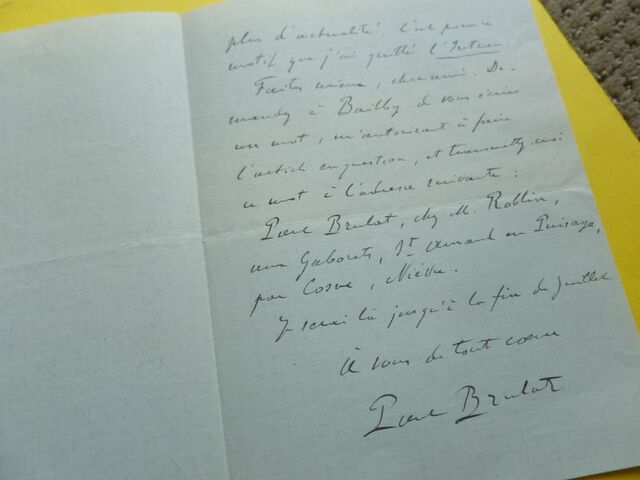 plus d'actualité. C'est pour ce
motif que j'ai quitté l'Intran
Faites mieux, cher ami. De-
mandez à Bailby de vous écrire
un mot, m'autorisant à faire
l'article en question, et transmettez-moi
ce mot à l'adresse suivante :
Paul Brulat, chez M. Roblin,
aux Gaborets, St Amand en Puisaye,
par Cosne, Nièvre.
J'y serai là jusqu'à la fin de Juillet.
à vous de tout cœur
Paul Brulat